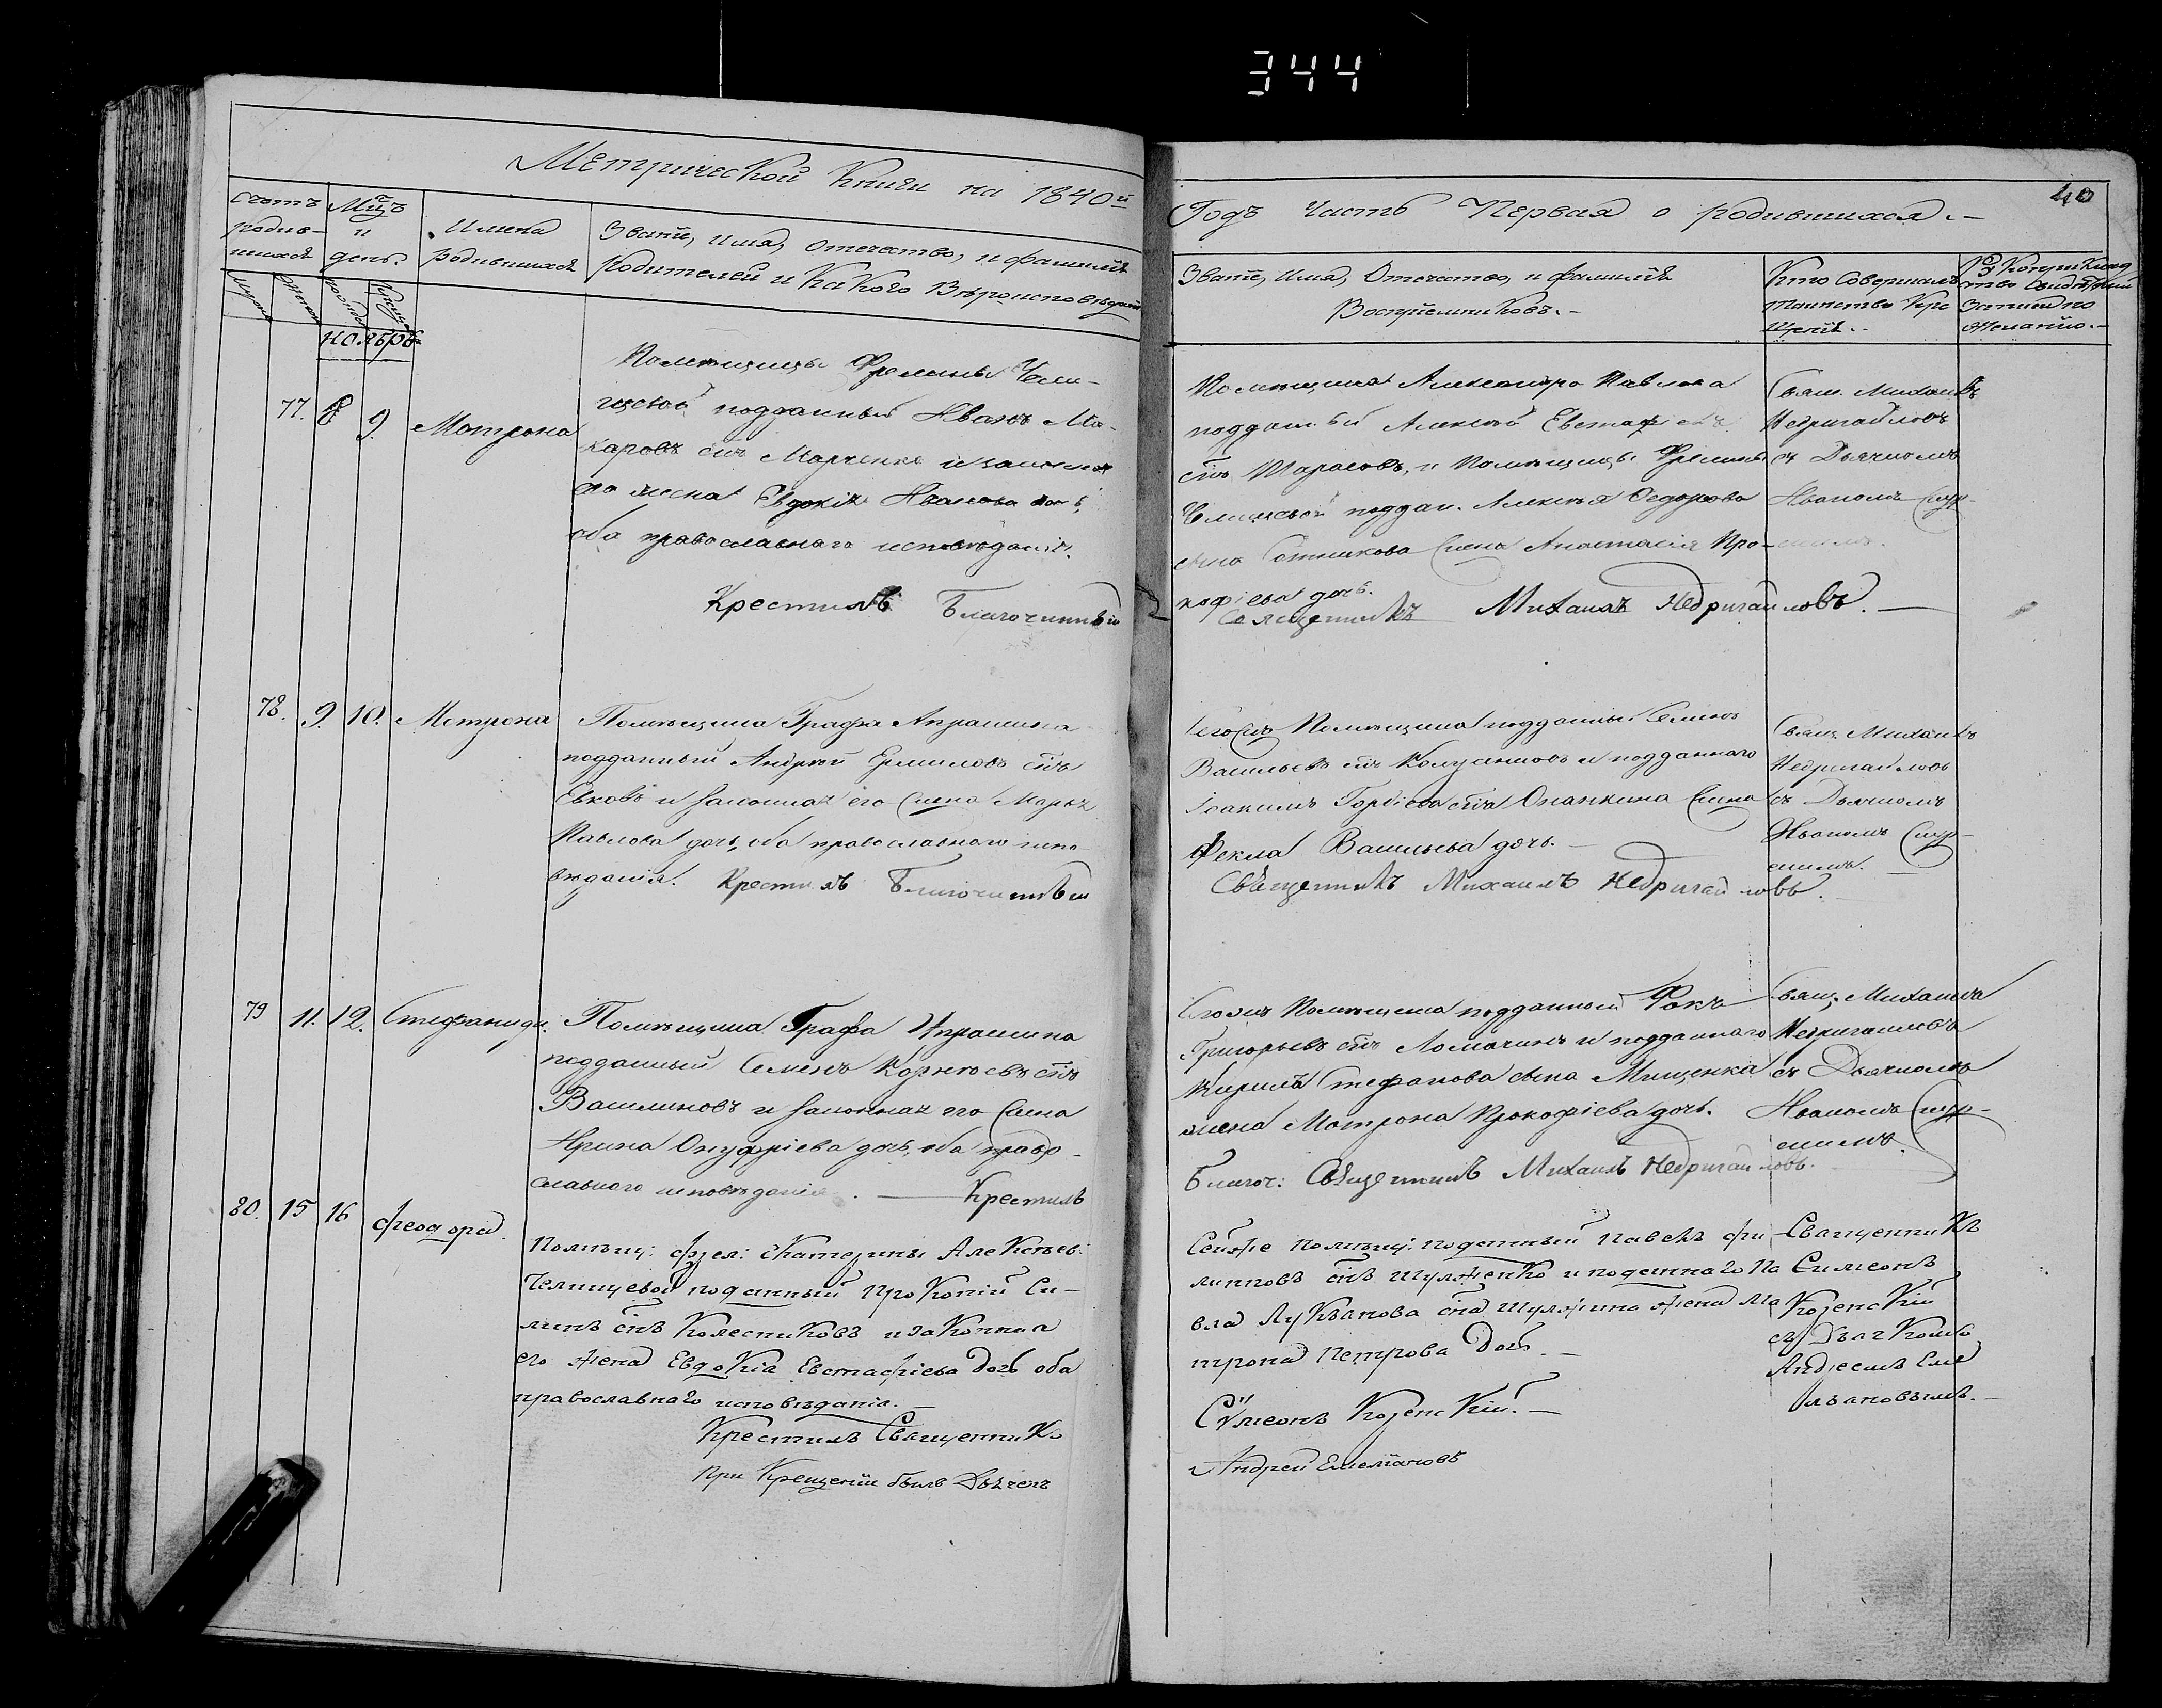 344
40
Метрической Книги на 1840й
Годъ Часть Первая о родившихся.-
Счотъ
родив-
шихся
Мцъ
и
день.
Имена
родившихся
Званіе, имя, Отечество, и фамилія
родителей и Какого Вѣроисповѣданія
Званіе, Имя, Отечество, и фамилія
Воспріемниковъ.-
Кто Совершалъ
таинство Кре
щенія.-
Ноябрь
77. 8 9. Матрона
Помѣщицы Фрелины Чели-
щевой подданный Иванъ Ма-
каровъ снъ Марченко и законная
его жена Евдокія Иванова дочь,
оба православнаго исповѣданія.
Крестилъ Благочинный
Помѣщика Александра Павлова
подданный Алексѣй Евстафіевъ
снъ Тарасовъ, и Помѣщицы Фрелины
Челищевой поддан. Алексѣя Федорова
сына Сотникова жена Анастасія Про-
кофіева дочь.
Священникъ Михаилъ Недригайловъ.
Свящ. Михаилъ
Недригайловъ
съ Дьячкомъ
Иваномъ
78. 9. 10. Матрона
Помѣщика Графа Апраксина
подданный Андрей Ермиловъ снъ
Евковъ и законная его жена Марья
Павлова дочь, оба православнаго испо
вѣданія. Крестилъ Благочинный
Того жъ Помѣщика подданный Семенъ
Васильевъ снъ и подданного
Іоакима Гордіева сна Опанкина жена
Фекла Васильева дочь.
Священникъ Михаилъ Недригайловъ.
Свящ. Михаилъ
Недригайловъ
съ Дьячкомъ
Иваномъ
79 11. 12. Стефанида.
Помѣщика Графа Апраксина
подданный Семенъ Корнѣевъ снъ
Василиновъ и законная его жена
Ирина Онуфріева дочь, оба право-
славного исповѣданія. Крестилъ
Того жъ Помѣщика подданный Фока
Григорьевъ снъ Ломакинъ и подданнаго
Кирила Стефанова сына Мищенка
жена Матрона Прокофіева дочь.
Благоч: Священникъ Михаилъ Недригайловъ.
Свящ. Михаилъ
Недригайловъ
съ Дьячкомъ
Иваномъ
80. 15 16 Феодоръ.
Помѣщ: фрел: Екатерины Алексѣев:
Челищевой поданный Прокопій Си-
линъ снъ Колесниковъ и законная
его жена Евдокія Евстафіева дочь оба
православнаго исповѣданія.-
Крестилъ Священникъ
При Крещеніи былъ Дьячекъ
Сейже помѣщ: поданный Павелъ Фи
липповъ снъ Шулженко и поданнаго Па
вла Лукъянова сна Шулжина жена Ма
трона Петрова дочь.-
Сѵмеонъ Козенскій.-
Андрей Емеліановъ
Священникъ
Симеонъ
Козенскій
съ Дьячкомъ
Андреемъ Еме
льановымъ.-